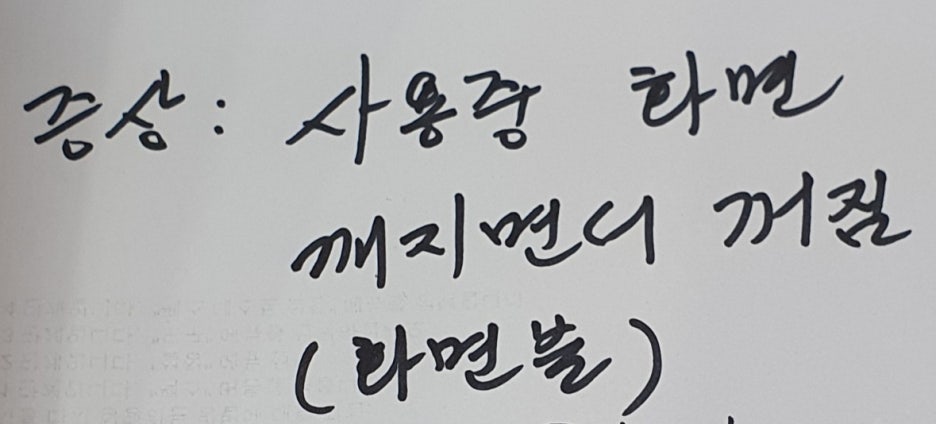 증상: 사용중 화면
깨지면서 꺼짐
(화면뿔)